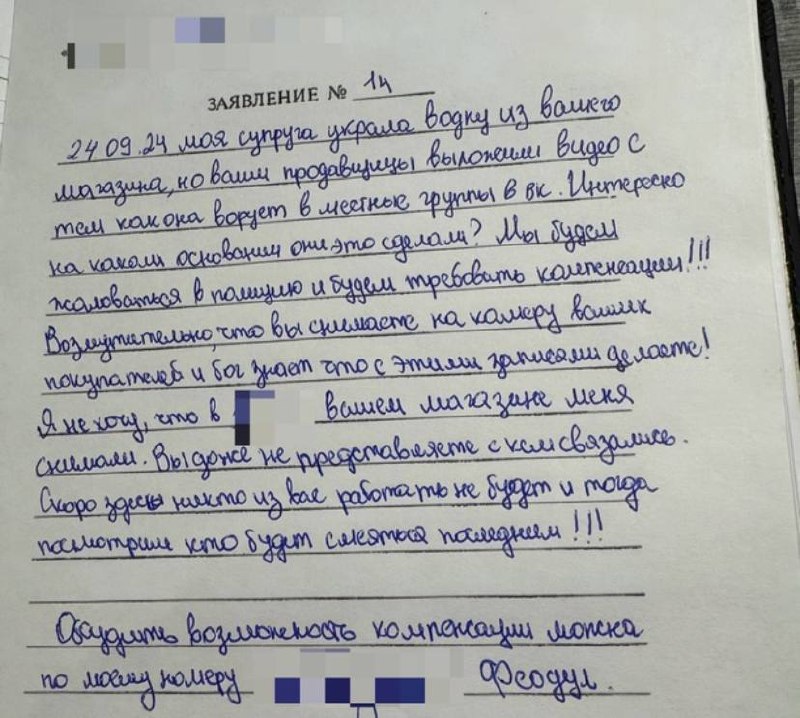 ЗАЯВЛЕНИЕ № 14
24 09.24 моя супруга украла водку из вашего
магазина, но ваши продавщицы выложили видео с
тем как она ворует в местные группы в вк. Интересно
на каком основании они это сделали? Мы будем
жаловаться в полицию и будем требовать компенсации!!!
Возмутительно, что вы снимаете на камеру ваших
покупателей и бог знает что с этими записями делаете!
Я не хочу, что в вашем магазине меня
снимали. Вы даже не представляете с кем связались.
Скоро здесь никто из вас работать не будет и тогда
посмотрим кто будет смеяться последним!!!
Обсудить возможность компенсации можна
по моему номеру Феодул.